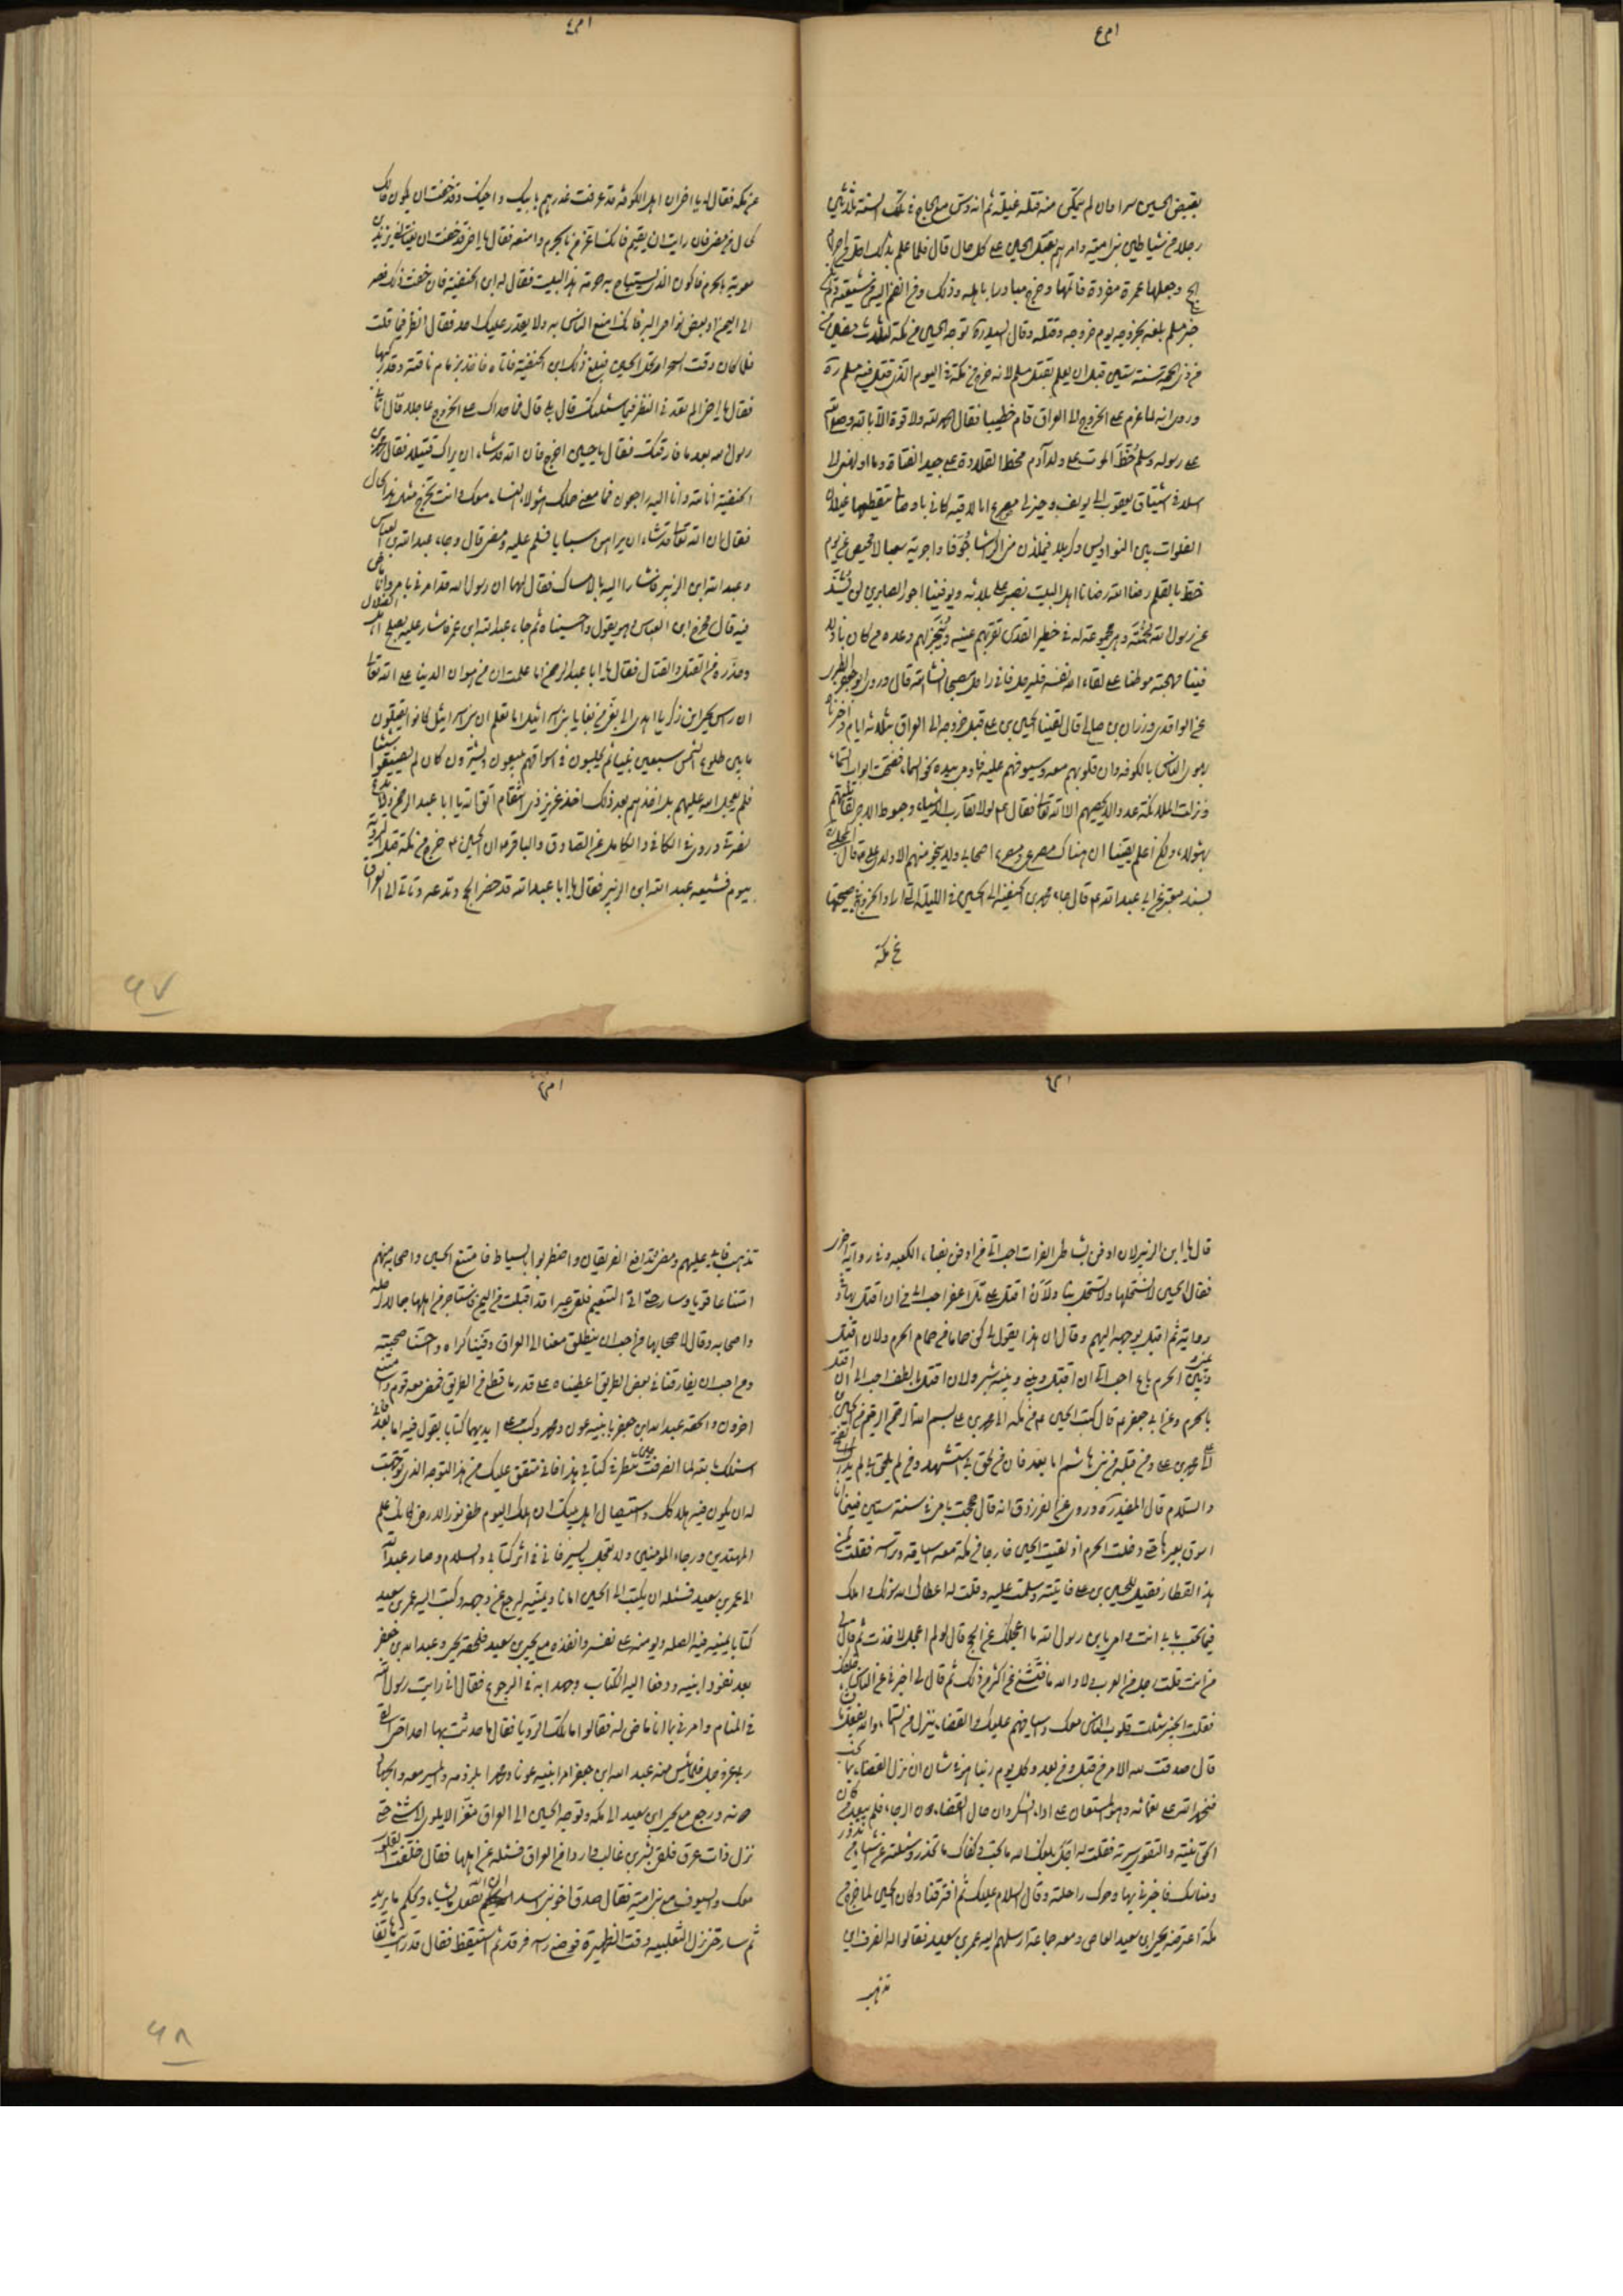 بقبض الحسين سرا وان لم يتمكن منه قتله غيلة ثم انه دس مع الحاج في تلك السنة ثلاثين
رجلا من شياطين بني امية وامرهم بقتل الحسين على كل حال قال فلما علم بذلك احل من احرام
الحج وجعلها عمرة مفردة
خبر مسلم بلغه بخروجه يوم خروجه وقتله وقال السيد ره توجه الحسين من مكة لثلث مضين
من ذي الحجة سنة ستين قبل ان يعلم بقتل مسلم لانه خرج من مكة في اليوم الذي قتل فيه مسلم ره
وروي انه لما عزم على الخروج الى العراق قام خطيبا فقال الحمد لله ولا قوة الا بالله وصلى الله
على رسوله وسلم خُطَّ الموت على ولد آدم مخط القلادة على جيد الفتاة وما اولهني الى
اسلافي اشتياق يعقوب الى يوسف وخير لي مصرع انا لاقيه كاني باوصالي تتقطعها عسلان
الفلوات بين النواويس وكربلا فيملأن مني اكراشا جُوَفا واجربة سغبا لا محيص عن يوم
خط بالقلم رضا الله رضانا اهل البيت نصبر على بلائه ويوفينا اجور الصابرين لن تشذ
عن رسول الله لُحمَتُه وهي مجموعة له في حظيرة القدس تقر بهم عينه ويُنجَز لهم وعده من كان باذلا
فينا مهجته موطنا على لقاء الله نفسه فليرحل فاني راحل مصبحا انشاء الله قال وروى ابو جعفر الطبري
عن الواقدي وزرارة بن صالح قال لقينا الحسين بن علي قبل خروجه الى العراق بثلاثة ايام فاخبرناه
بهوى الناس بالكوفة وان قلوبهم معه وسيوفهم عليه فاومى بيده نحو السماء ففتحت ابواب السماء
ونزلت الملائكة عددا لا يحصيهم الا الله تعالى فقال ع لولا تقارب الاشياء وحبوط الاجر لقاتلتهم
بهؤلاء ولكن اعلم يقينا ان هناك مصرعي ومصرع اصحابي ولا ينجو منهم الا ولدي علي
بسند معتبر عن ابي عبدالله ع قال جاء محمد بن الحنفية الى الحسين في الليلة التي اراد الخروج في صبيحتها
عن مكة
عن مكة فقال له يا اخي ان اهل الكوفة قد عرفت غدرهم بابيك واخيك وقد خفت ان يكون حالك
كحال من مضى فان رايت ان تقيم فانك اعز من بالحرم وامنعه فقال يا اخي قد خفت ان يغتالني يزيد بن
معوية بالحرم فاكون الذي يستباح به حرمة هذا البيت فقال له ابن الحنفية فان خفت ذلك فصر
الى اليمن او بعض نواحي البر فانك امنع الناس به ولا يقدر عليك احد فقال انظر فيما قلت
فلما كان وقت السحر ارتحل الحسين فبلغ ذلك ابن الحنفية فاتاه فاخذ بزمام ناقته وقد ركبها
فقال يا اخي الم تعدني النظر فيما سئلتك قال بلى قال فما حداك على الخروج عاجلا قال اتاني
رسول الله بعد ما فارقتك فقال يا حسين اخرج فان الله قد شاء ان يراك قتيلا فقال محمد بن
الحنفية انا لله وانا اليه راجعون فما معنى حملك هؤلاء النساء معك وانت تخرج على مثل هذا الحال
فقال ان الله تعالى قد شاء ان يراهن سبايا فسلم عليه ومضى قال وجاء عبدالله بن العباس
وعبدالله ابن الزبير فاشارا اليه بالامساك فقال لهما ان رسول الله قد امرني بامر وانا ماض
فيه قال فخرج ابن العباس وهو يقول واحسيناه ثم جاء عبدالله ابن عمر فاشار عليه بصلح اهل الضلال
وحذره من القتل والقتال فقال يا ابا عبدالرحمن اما علمت ان من هوان الدنيا على الله تعالى
ان راس يحيى ابن زكريا اهدي الى بغي من بغايا بني اسرائيل اما تعلم ان بني اسرائيل كانوا يقتلون
ما بين طلوع الشمس سبعين نبيا ثم يجلسون في اسواقهم يبيعون ويشترون كان لم يصنعوا شيئا
فلم يعجل الله عليهم بل اخذهم بعد ذلك اخذ عزيز ذي انتقام اتق الله يا ابا عبدالرحمن ولا تدع
نصرتي وروي في الكافي والكامل عن الصادق والباقر ان الحسين ع خرج من مكة قبل التروية
بيوم فشيعه عبدالله ابن الزبير فقال يا ابا عبدالله قد حضر الحج وتدعه وتاتي الى العراق
۹۷
قال يا ابن الزبير لان ادفن بشاطئ الفرات احب الي من ان ادفن بفناء الكعبة وفي رواية اخرى
فقال الحسين لا نستحلها ولا تستحل بنا ولأنْ اقتل على تل اعفر احب الي من ان اقتل بها وفي
رواية ثم اقبل بوجهه اليهم وقال ان هذا يقول لي كن حماما من حمام الحرم ولان اقتل
وبيني وبين الحرم باع احب الي ان اقتل وبيني وبينه شبر ولان اقتل بالطف احب الي ان اقتل
بالحرم وعن ابي جعفر ع قال كتب الحسين ع من مكة الى محمد بن علي بسم الله الرحمن الرحيم من الحسين بن
علي الى محمد بن علي ومن قبله من بني هاشم اما بعد فان من لحق بي استشهد ومن لم يلحق بي لم يدرك الفتح
والسلام قال المفيد ره وروي عن الفرزدق انه قال حججت بامي في سنة ستين فبينما انا
اسوق بعيرها حتى دخلت الحرم اذ لقيت الحسين خارجا من مكة معه اسيافه وتراسه فقلت لمن
هذا القطار فقيل للحسين بن علي فاتيته وسلمت عليه وقلت له اعطاك الله سؤلك واملك
فيما تحب بابي انت وامي يابن رسول الله ما اعجلك عن الحج قال لو لم اعجل لاخذت ثم قال لي
من انت قلت رجل من العرب فلا والله ما فتشني عن اكثر من ذلك ثم قال لي اخبرني عن الناس خلفك
فقلت الخبير سئلت قلوب الناس معك واسيافهم عليك والقضاء ينزل من السماء والله يفعل ما
قال صدقت لله الامر من قبل ومن بعد وكل يوم ربنا هو في شان ان نزل القضاء بما نحب
فنحمد الله على نعمائه وهو المستعان على اداء الشكر وان حال القضاء دون الرجاء فلم يبعد من كان
الحق نيته والتقوى سريرته فقلت له اجل بلغك الله ما تحب وكفاك ما تحذر وسئلته عن اشياء من نذور
ومناسك فاخبرني بها وحرك راحلته وقال السلام عليك ثم افترقنا وكان الحسين لما خرج من
مكة اعترضه يحيى ابن سعيد العاص ومعه جماعة ارسلهم اليه عمرو بن سعيد فقالوا له انصرف اين
تذهب
تذهب فابى عليهم ومضى وتدافع الفريقان واضطربوا بالسياط فامتنع الحسين واصحابه منهم
امتناعا قويا وسار حتى اتى التنعيم فلقي عيرا قد اقبلت من اليمن فاستاجر من اهلها جمالا لرحله
واصحابه وقال لاصحابها من احب ان ينطلق معنا الى العراق وفينا كراه واحسنا صحبته
ومن احب ان يفارقنا في بعض الطريق اعطيناه على قدر ما قطع من الطريق فمضى معه قوم وامتنع
اخرون والحقه عبدالله ابن جعفر بابنيه عون ومحمد وكتب على ايديهما كتابا يقول فيه اما بعد فاني
اسئلك بالله لما انصرفت حين تنظر في كتابي هذا فاني مشفق عليك من هذا التوجه الذي توجهت
له ان يكون فيه هلاكك واستيصال اهل بيتك ان هلكت اليوم طفئ نور الارض فانك علم
المهتدين ورجاء المؤمنين ولا تعجل بالسير فاني في اثر كتابي والسلام وصار عبدالله
الى عمرو بن سعيد فسئله ان يكتب الى الحسين امانا ويمنيه ليرجع عن وجهه وكتب اليه عمرو بن سعيد
كتابا يمنيه فيه الصله ويومنه على نفسه وانفذه مع يحيى بن سعيد فلحقه يحيى وعبدالله بن جعفر
بعد نفوذ ابنيه ودفعا اليه الكتاب وجهدا به في الرجوع فقال اني رايت رسول الله
في المنام وامرني بما انا ماض له فقالوا ما تلك الرؤيا فقال ما حدثت بها احدا حتى القى
ربي عز وجل فلما يئس منه عبدالله ابن جعفر امر ابنيه عونا ومحمدا بلزومه والمسير معه والجهاد
دونه ورجع مع يحيى ابن سعيد الى مكة وتوجه الحسين الى العراق مغذا لا يلوي الى شئ حتى
نزل ذات عرق فلقي بشر بن غالب واردا من العراق فسئله عن اهلها فقال خلفت القلوب
معك والسيوف مع بني امية فقال صدق اخو بني اسد ان الله يفعل ما يشاء ويحكم ما يريد
ثم سار حتى نزل الثعلبيه وقت الظهيرة فوضع راسه فرقد ثم استيقظ فقال قد رايت هاتفا
۹۸